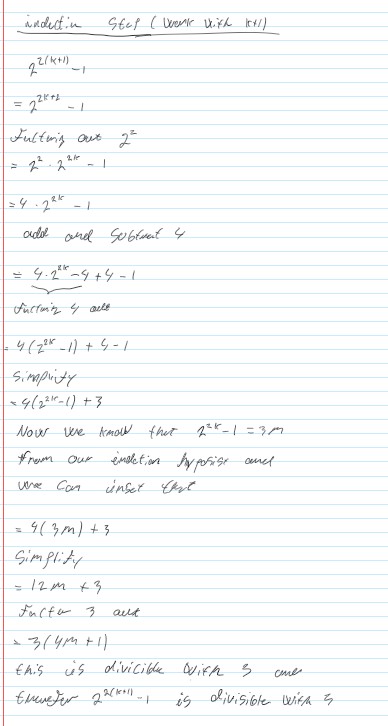 induction step (work with k+1)
2^{2(k+1)} - 1
= 2^{2k+2} - 1
Factoring out 2^2
= 2^2 · 2^{2k} - 1
= 4 · 2^{2k} - 1
add and subtract 4
= 4·2^{2k} - 4 + 4 - 1
factoring 4 out
= 4(2^{2k} - 1) + 4 - 1
Simplify
= 4(2^{2k} - 1) + 3
Now we know that 2^{2k} - 1 = 3m
from our induction and
we can insert that
= 4(3m) + 3
Simplify
= 12m + 3
Factor 3 out
= 3(4m + 1)
this is divisible with 3 and
therefor 2^{2(k+1)} - 1 is divisible with 3